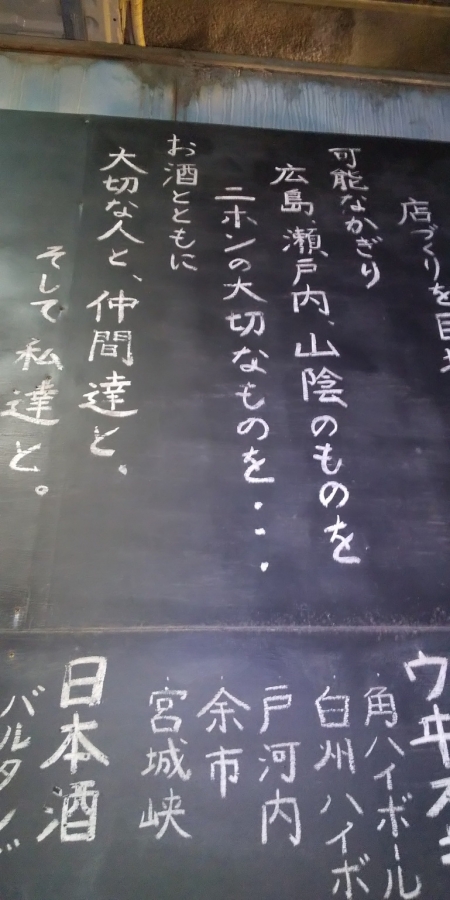 店づくりを目
可能なかぎり
広島、瀬戸内、山陰のものを
ニホンの大切なものを・・・
お酒とともに
大切な人と、仲間達と、
そして私達と。
ウヰス
角ハイボール
白州ハイボ
戸河内
余市
宮城峡
日本酒
バルタン